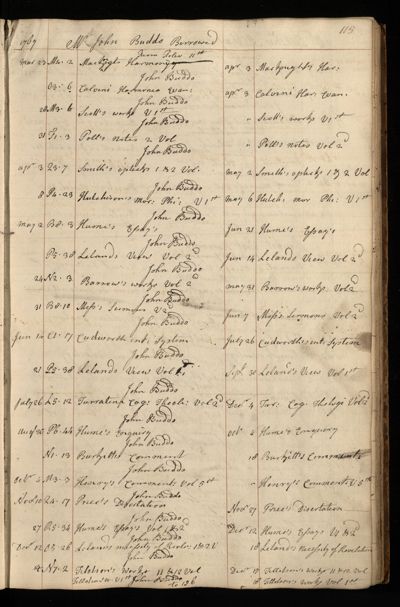 115
1767 Mr John Buddo Borrowed
Mar 23 Ma. 12 Macknight Harmony
John Buddo
apr 3 Macknight's Har.
D3. 6 Calvini Harmonia Evan:
John Buddo
apr 3 Calvini Har. Evan.
28 M3. 6 Scott's works V 1st
John Buddo
" Scott's works V 1st
31 3 Pott's notes 2 Vol
John Buddo
" Pott's notes Vol 2d
apr 3 7 Smith's opticks 1 & 2 Vol.
John Buddo
May 2 Smith's opticks 1 & 2 Vol
8 Hutchison's mor: Phi: V 1st
John Buddo
May 6 Hutch: mor Phi: V 1st
May 2 B8. 3 Hume's Essay's
John Buddo
Jun 21 Hume's Essay's
P5. 38 Lelands View Vol 2d
John Buddo
Jun 14 Lelands View Vol 2d
24 N2. 3 Barrow's works Vol 2d
John Buddo
May 31 Barrow's works Vol 2d
31 B8. 10 Moss's Sermons V 2d
John Buddo
Jun 7 Moss's Sermons Vol 2d
Jun 10 17 Cudworth's int: System
John Buddo
July 26 Cudworth's int: System
21 P5. 38 Leland's View Vol 1st
John Buddo
Sept 30 Leland's View Vol 1st
July 26 L5. 12 Turratini Theol: Vol 2d
John Buddo
Decr 4 Tur: Theologi Vol 2
Hume's Enquiry
John Buddo
octr 8 Hume's Enquiry
N1. 13 Burkitts Comment
John Buddo
18 Burkitt's Comments
octr N3. 3 Henry's Comments Vol 5th
John Buddo
Henry's Comments V 5th
Novr 10 17 Price's Dissertation
John Buddo
Novr 27 Price's Dissertation
27 Hume's Essays Vol 1 & 2d
John Buddo
Decr 12 Hume's Essay's V1 & 2d
Decr 12 26 Leland's necessity of Revln: 1 & 2 V
John Buddo
18 Leland's necessity of Revelation
18 N7. 2 Tillotson's Works 11 & 12 Vol
Decr Tillotson's works 11 & 12 Vol
Tillotson's w. V 1st John Buddo
to 126
18 Tillotson's works Vol 1st